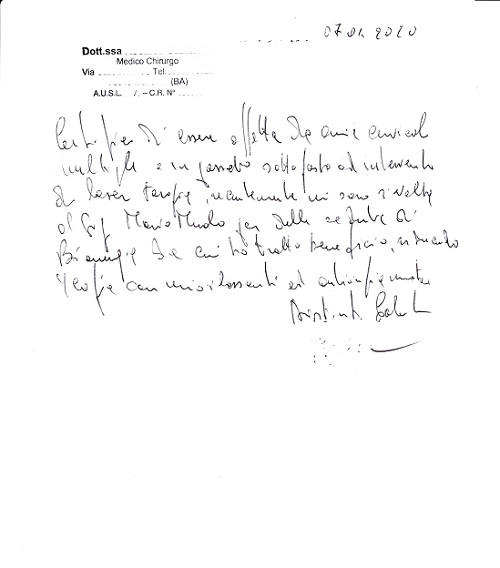 07 01 2020
Dott.ssa
Medico Chirurgo
Via Tel.
(BA)
A.U.S.L. /. – C.R. N°
Certifico di essere affetta da ernie cervicali
multiple e in passato sottoposta ad intervento
di laser terapia, recentemente mi sono rivolta
al Sig Mario per delle sedute di
da cui ho tratto beneficio, riducendo
terapie con miorilassanti ed antinfiammatori
Distinti Saluti